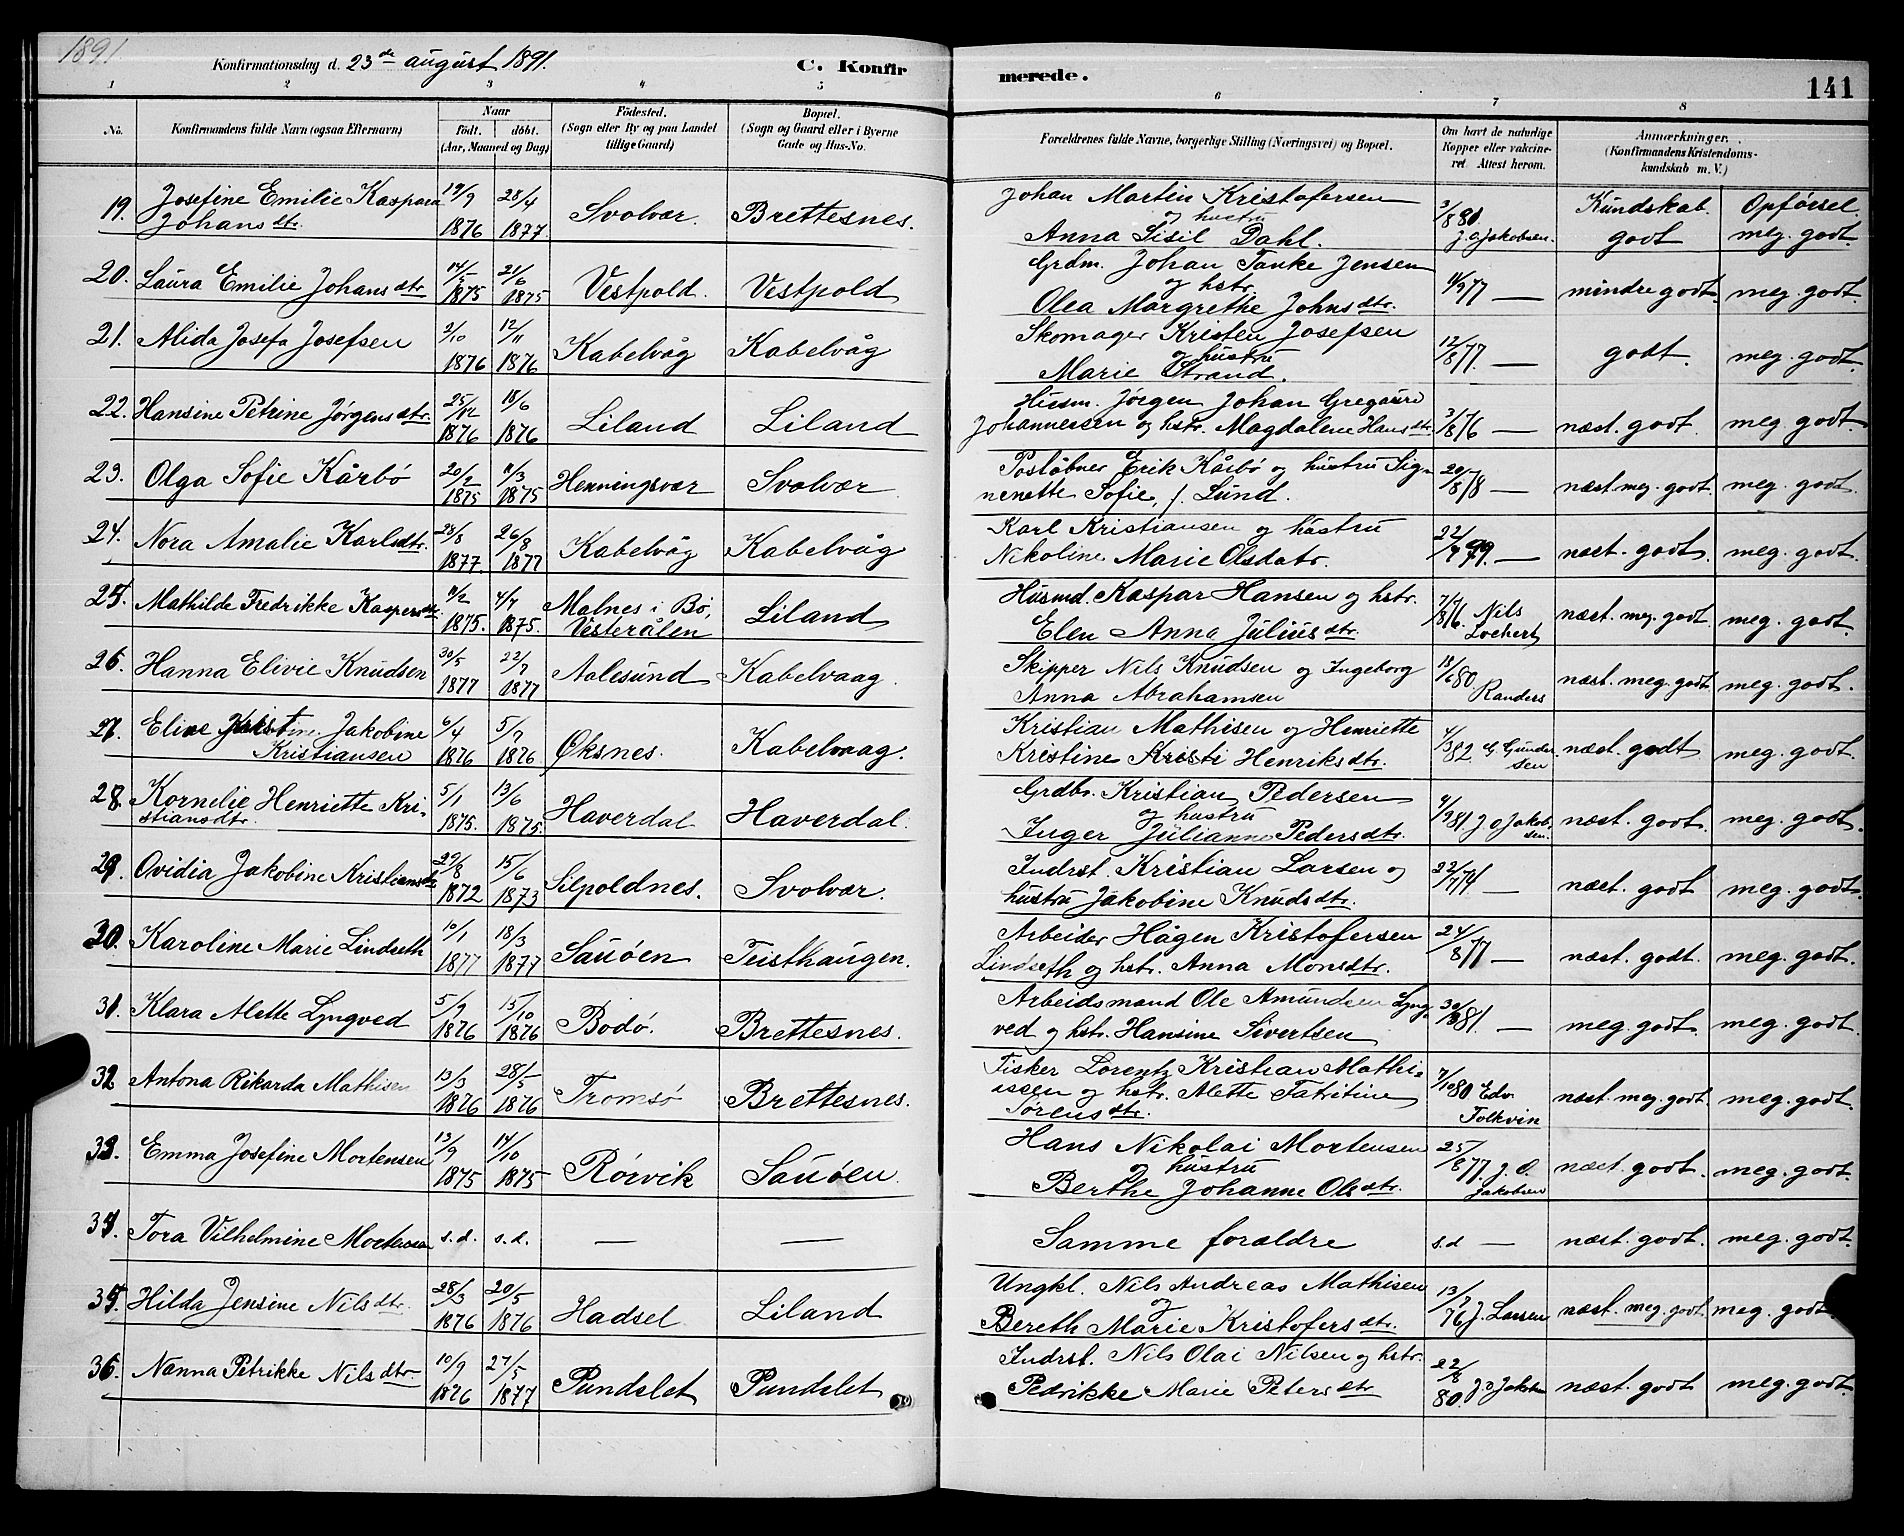 1891
Konfirmationsdag d. 23de august 1891. C. Konfirmerede. 141
1 2 3 4 5 6 7 8
No. Konfirmandens fulde Navn (ogsaa Efternavn) Naar født. døbt. (Aar, Maaned og Dag) Fødested. (Sogn eller By og paa Landet tillige Gaard) Bopæl. (Sogn og Gaard eller i Byerne Gade og Hus-No. Forældrenes fulde Navne, borgerlige Stilling (Næringsvei) og Bopæl. Om havt de naturlige Kopper eller vakcineret. Attest herom. Anmærkninger. (Konfirmandens Kristendomskundskab m. V.)
Kundskab. Opførsel.
19. Josefine Emilie Kaspara Johansdtr. 19/9 1876 28/4 1877 Svolvær. Brettesnes. Johan Martin Kristofersen og hustru Anna Sisil Dahl. 3/8 80. J. O Jakobsen. godt meg. godt.
20. Laura Emilie Johansdtr 14/5 1875 21/6 1875 Vestpold. Vestpold Grdm. Johan Tanke Jensen og hstr. Olea Margrethe Johnsdtr. 4/9 77 — mindre godt. meg. godt.
21. Alida Josefa Josefsen 2/10 1876 12/11 1876 Kabelvåg Kabelvåg Skomager Kristen Josefsen og hustru Marie Strand. 12/8 77. — godt. meg. godt.
22. Hansine Petrine Jørgensdtr. 25/12 1876 18/6 1876 Liland Liland Husm. Jørgen Johan Gregaard Johannessen og hstr. Magdalene Hansdtr. 3/8 76 — næst. godt. meg godt.
23. Olga Sofie Kårbø 20/2 1875 11/3 1875 Henningsvær Svolvær Poståbner Erik Kårbø og hustru Signenette Sofie, f. Lund. 20/8 78 — næst. meg. godt. meg. godt.
24. Nora Amalie Karlsdtr. 28/8 1877. 26/8 1877 Kabelvåg Kabelvåg Karl Kristiansen og hustru Nikoline Marie Olsdatr. 22/7 79. — næst. godt. meg. godt.
25. Mathilde Fredrikke Kaspersdtr. 11/2 1875. 4/7 1875. Malnes i Bø, Vesterålen Liland Husmd. Kaspar Hansen og hstr. Elen Anna Juliusdtr. 7/7 76. Nils Lochert næst. meg. godt. meg. godt.
26. Hanna Elivie Knudsen 30/5 1877 22/7 1877 Aalesund Kabelvaag. Skipper Nils Knudsen og Ingeborg Anna Abrahamsen 18/6 80 Randers næst. meg. godt. meg. godt.
27. Jakobine Kristiansen 6/4 1876 5/7 1876 Øksnes. Kabelvaag. Kristian Mathisen og Henriette Kristine Kristi Henriksdtr. 4/3 82 G. Gundersen næst. godt meg. godt.
28. Kornelie Henriette Kristiansdtr. 5/1 1875. 13/6 1875. Haverdal Haverdal. Grdbr. Kristian Pedersen og hustru Inger Julianne Pedersdtr. 4/9 81 J O Jakobsen. næst. godt. meg. godt.
29. Ovidia Jakobine Kristiansdtr 29/8 1872 15/6 1873 Silpoldnes. Svolvær. Indrst. Kristian Larsen og hustru Jakobine Knudsdtr. 22/7 74 — næst. godt meg. godt.
30. Karoline Marie Lindseth 10/1 1877 18/3 1877 Sauøen Teisthaugen. Arbeider Hågen Kristofersen Lindseth og hstr. Anna Monsdtr. 24/8 77 — næst. godt. meg. godt.
31. Klara Alette Lyngved 5/9 1876 15/10 1876 Bodø. Brettesnes. Arbeidsmand Ole Amundsen Lyngved og hstr. Hansine Sivertsen 30/8 81. — meg. godt. meg. godt.
32 Antona Rikarda Mathisen 13/3 1876 28/5 1876 Tromsø Brettesnes. Fisker Lorentz Kristian Mathiassen og hstr. Mette Sørensdtr. 7/10 80 Edv. Folkvin næst. meg. godt meg. godt.
33. Emma Josefine Mortensen 13/9 1875 14/10 1875 Rørvik Sauøen. Hans Nikolai Mortensen og hustru Berthe Johanne Olsdtr. 25/8 77. J. O. Jakobsen næst. godt. meg. godt.
34. Tora Vilhelmine Mortensen s.d. s.d. — — Samme forældre s.d — næst. godt. meg. godt.
35. Hilda Jensine Nilsdtr. 28/3 1876 20/5 1876 Hadsel Liland Ungkl. Nils Andreas Mathisen og Bereth Marie Kristofersdtr. 13/7 76 J. Larsen næst. meg. godt meg. godt.
36. Nanna Petrikke Nilsdtr. 10/9 1876 27/5 1877 Pundslet Pundslet Indrst. Nils Olai Nilsen og hstr. Pedrikke Marie Petersdtr 22/8 80. J. O Jakobsen næst. godt meg. godt.